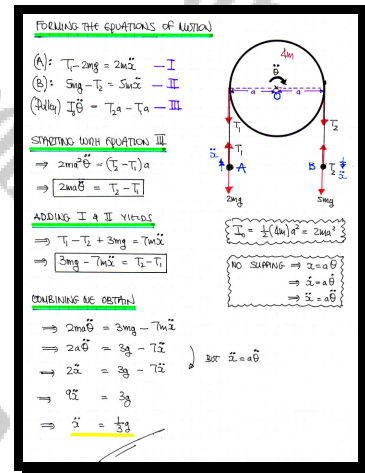 FORMING THE EQUATIONS OF MOTION
(A): T₁ - 2mg = 2mẍ — I
(B): 5mg - T₂ = 5mẍ — II
(Pulley) I₀θ̈ = T₂a - T₁a — III
STARTING WITH EQUATION III
⇒ 2ma²θ̈ = (T₂ - T₁)a
⇒ 2maθ̈ = T₂ - T₁
ADDING I & II YIELDS
⇒ T₁ - T₂ + 3mg = 7mẍ
⇒ 3mg - 7mẍ = T₂ - T₁
COMBINING WE OBTAIN
⇒ 2maθ̈ = 3mg - 7mẍ
⇒ 2aθ̈ = 3g - 7ẍ
BUT ẍ = aθ̈
⇒ 2ẍ = 3g - 7ẍ
⇒ 9ẍ = 3g
⇒ ẍ = ⅓g
4m
θ̈
a a
O
T₁ T₂
ẍ T₁ T₂ ẍ
A B
2mg 5mg
I₀ = ½(4m)a² = 2ma²
NO SLIPPING ⇒ x = aθ
⇒ ẋ = aθ̇
⇒ ẍ = aθ̈